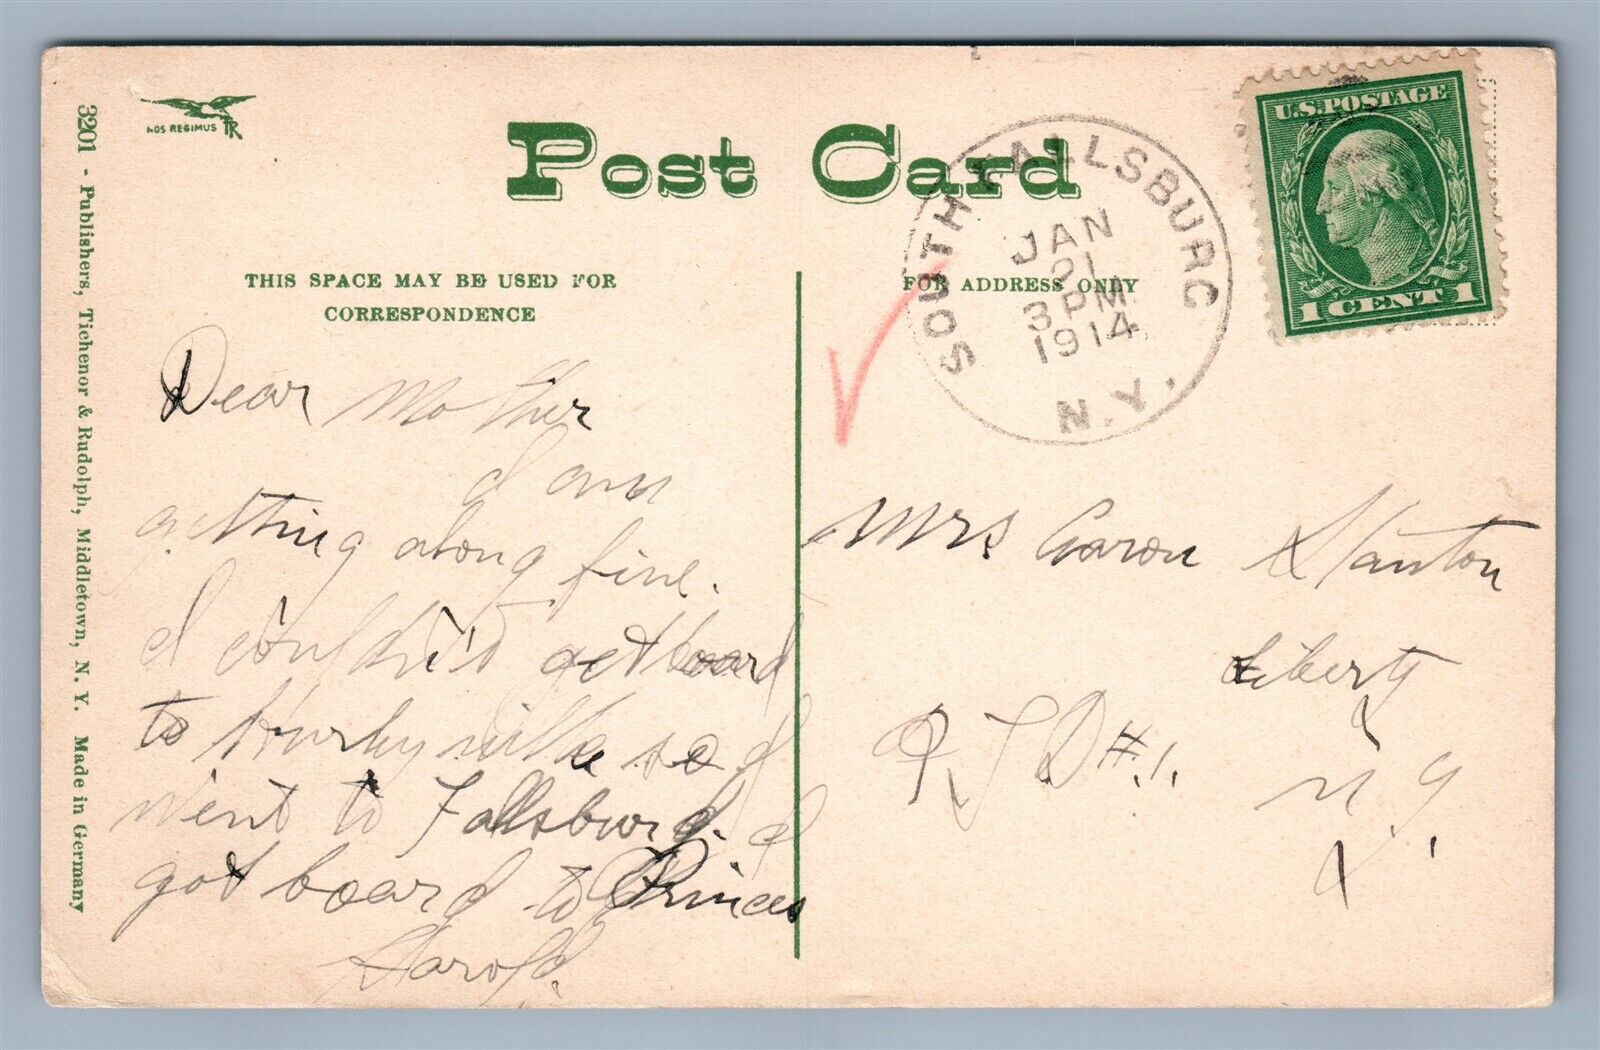 3201 - Publishers, Tichenor & Rudolph, Middletown, N. Y. Made in Germany
NOS REGIMUS TR
Post Card
THIS SPACE MAY BE USED FOR
CORRESPONDENCE
FOR ADDRESS ONLY
SOUTH FALLSBURG
N.Y.
JAN
21
3 PM
1914
U.S. POSTAGE
1 CENT 1
Dear Mother
I am
getting along fine.
I couldn't get board
to Hurleyville so I
went to Fallsburg. I
got board to Princes
Harold.
Mrs Aaron Stanton
Liberty
R F D #.1.
N.Y.